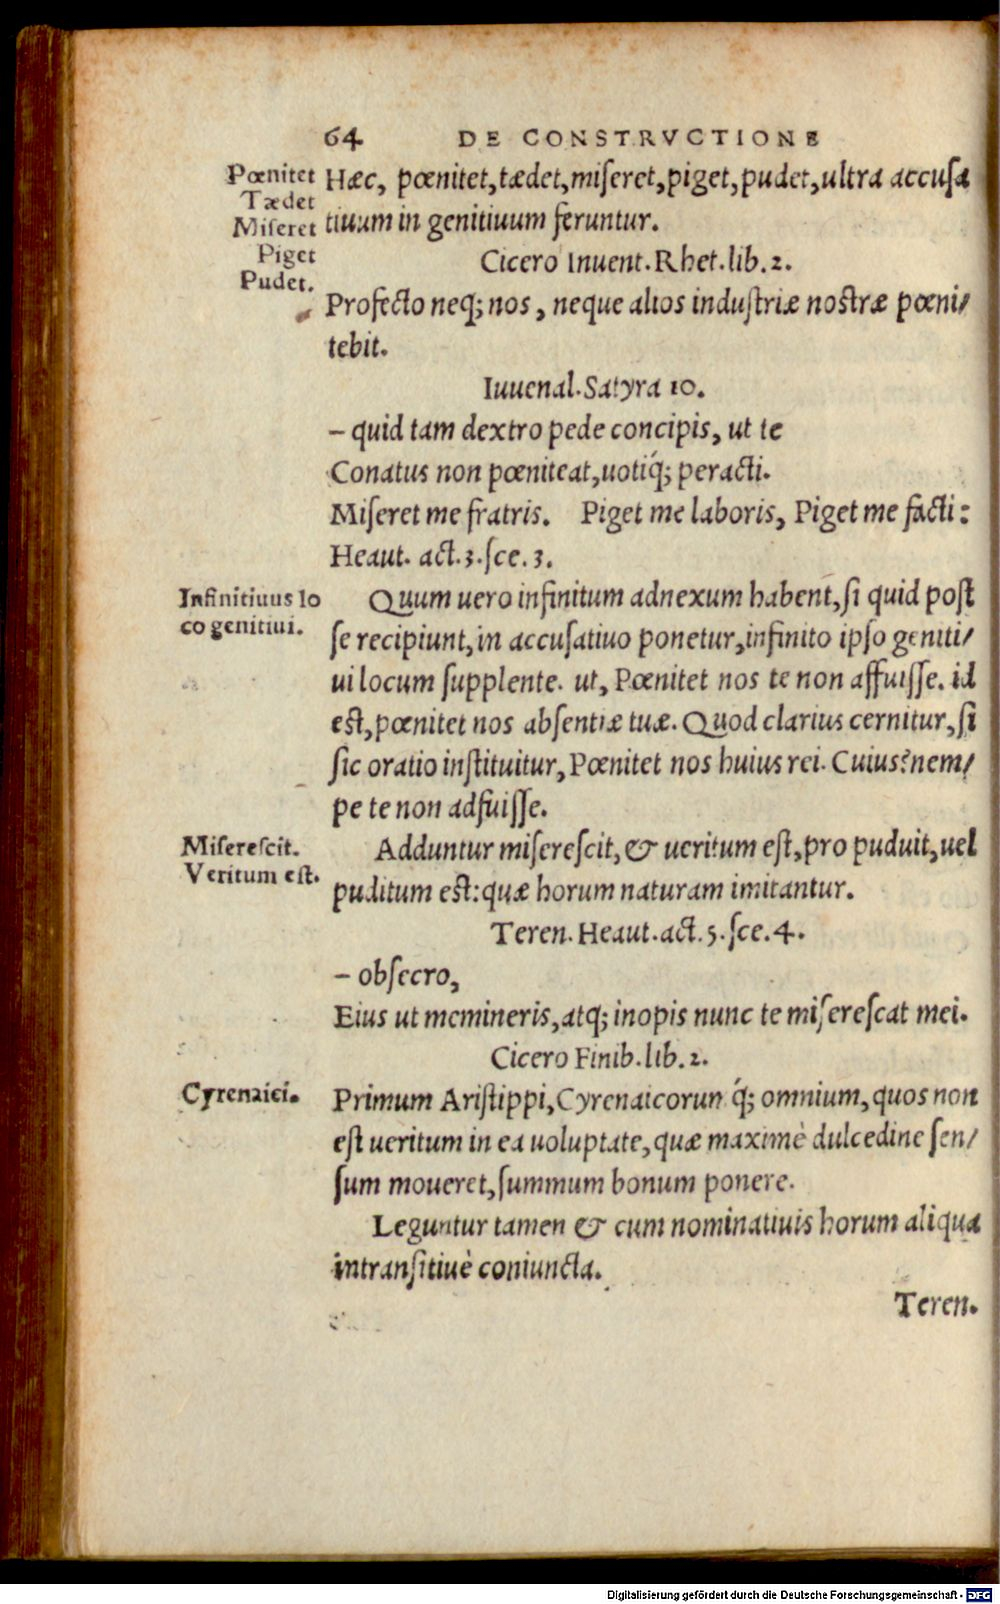 64 DE CONSTRVCTIONE
Pœnitet
Tædet
Miseret
Piget
Pudet.
Hæc, pœnitet, tædet, miseret, piget, pudet, ultra accusa
tiuum in genitiuum feruntur.
Cicero Inuent. Rhet. lib. 2.
Profecto neq; nos, neque alios industriæ nostræ pœni/
tebit.
Iuuenal. Satyra 10.
– quid tam dextro pede concipis, ut te
Conatus non pœniteat, uotiq́; peracti.
Miseret me fratris. Piget me laboris, Piget me facti:
Heaut. act. 3. sce. 3.
Infinitiuus lo
co genitiui.
Quum uero infinitum adnexum habent, si quid post
se recipiunt, in accusatiuo ponetur, infinito ipso geniti/
ui locum supplente. ut, Pœnitet nos te non affuisse. id
est, pœnitet nos absentiæ tuæ. Quod clarius cernitur, si
sic oratio instituitur, Pœnitet nos huius rei. Cuius? nem/
pe te non adfuisse.
Miserescit.
Veritum est.
Adduntur miserescit, & ueritum est, pro puduit, uel
puditum est: quæ horum naturam imitantur.
Teren. Heaut. act. 5. sce. 4.
– obsecro,
Eius ut memineris, atq; inopis nunc te miserescat mei.
Cicero Finib. lib. 2.
Cyrenaici.
Primum Aristippi, Cyrenaicorun q́; omnium, quos non
est ueritum in ea uoluptate, quæ maximè dulcedine sen/
sum moueret, summum bonum ponere.
Leguntur tamen & cum nominatiuis horum aliqua
intransitiuè coniuncta.
Teren.
Digitalisierung gefördert durch die Deutsche Forschungsgemeinschaft - DFG